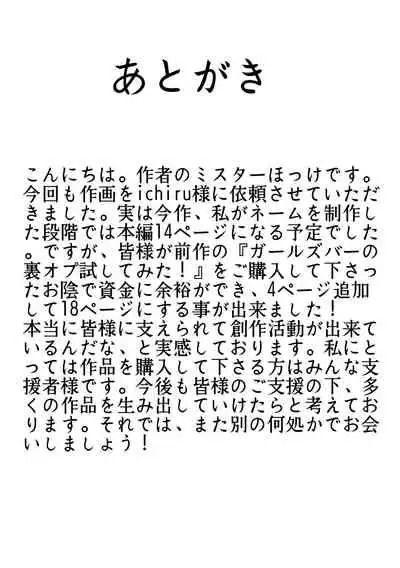 あとがき
こんにちは。作者のミスターほっけです。
今回も作画をichiru様に依頼させていただ
きました。実は今作、私がネームを制作し
た段階では本編14ページになる予定でした
。ですが、皆様が前作の『ガールズバーの
裏オプ試してみた！』をご購入して下さっ
たお陰で資金に余裕ができ、4ページ追加
して18ページにする事が出来ました！
本当に皆様に支えられて創作活動が出来て
いるんだな、と実感しております。私にと
っては作品を購入して下さる方はみんな支
援者様です。今後も皆様のご支援の下、多
くの作品を生み出していけたらと考えてお
ります。それでは、また別の何処かでお会
いしましょう！